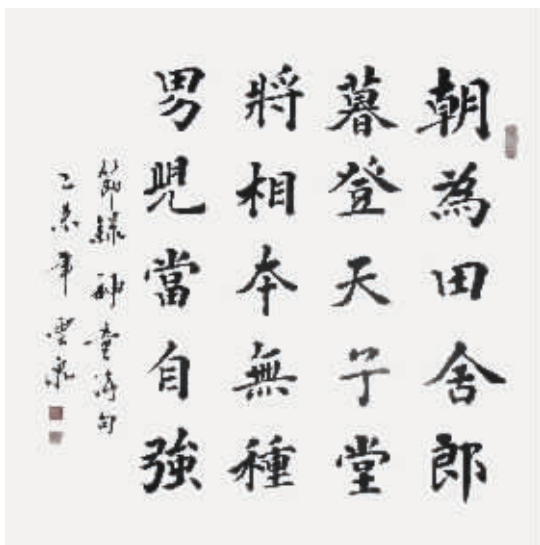 朝為田舍郎
暮登天子堂
將相本無種
男兒當自強
節錄神童詩句
乙未年雲泉